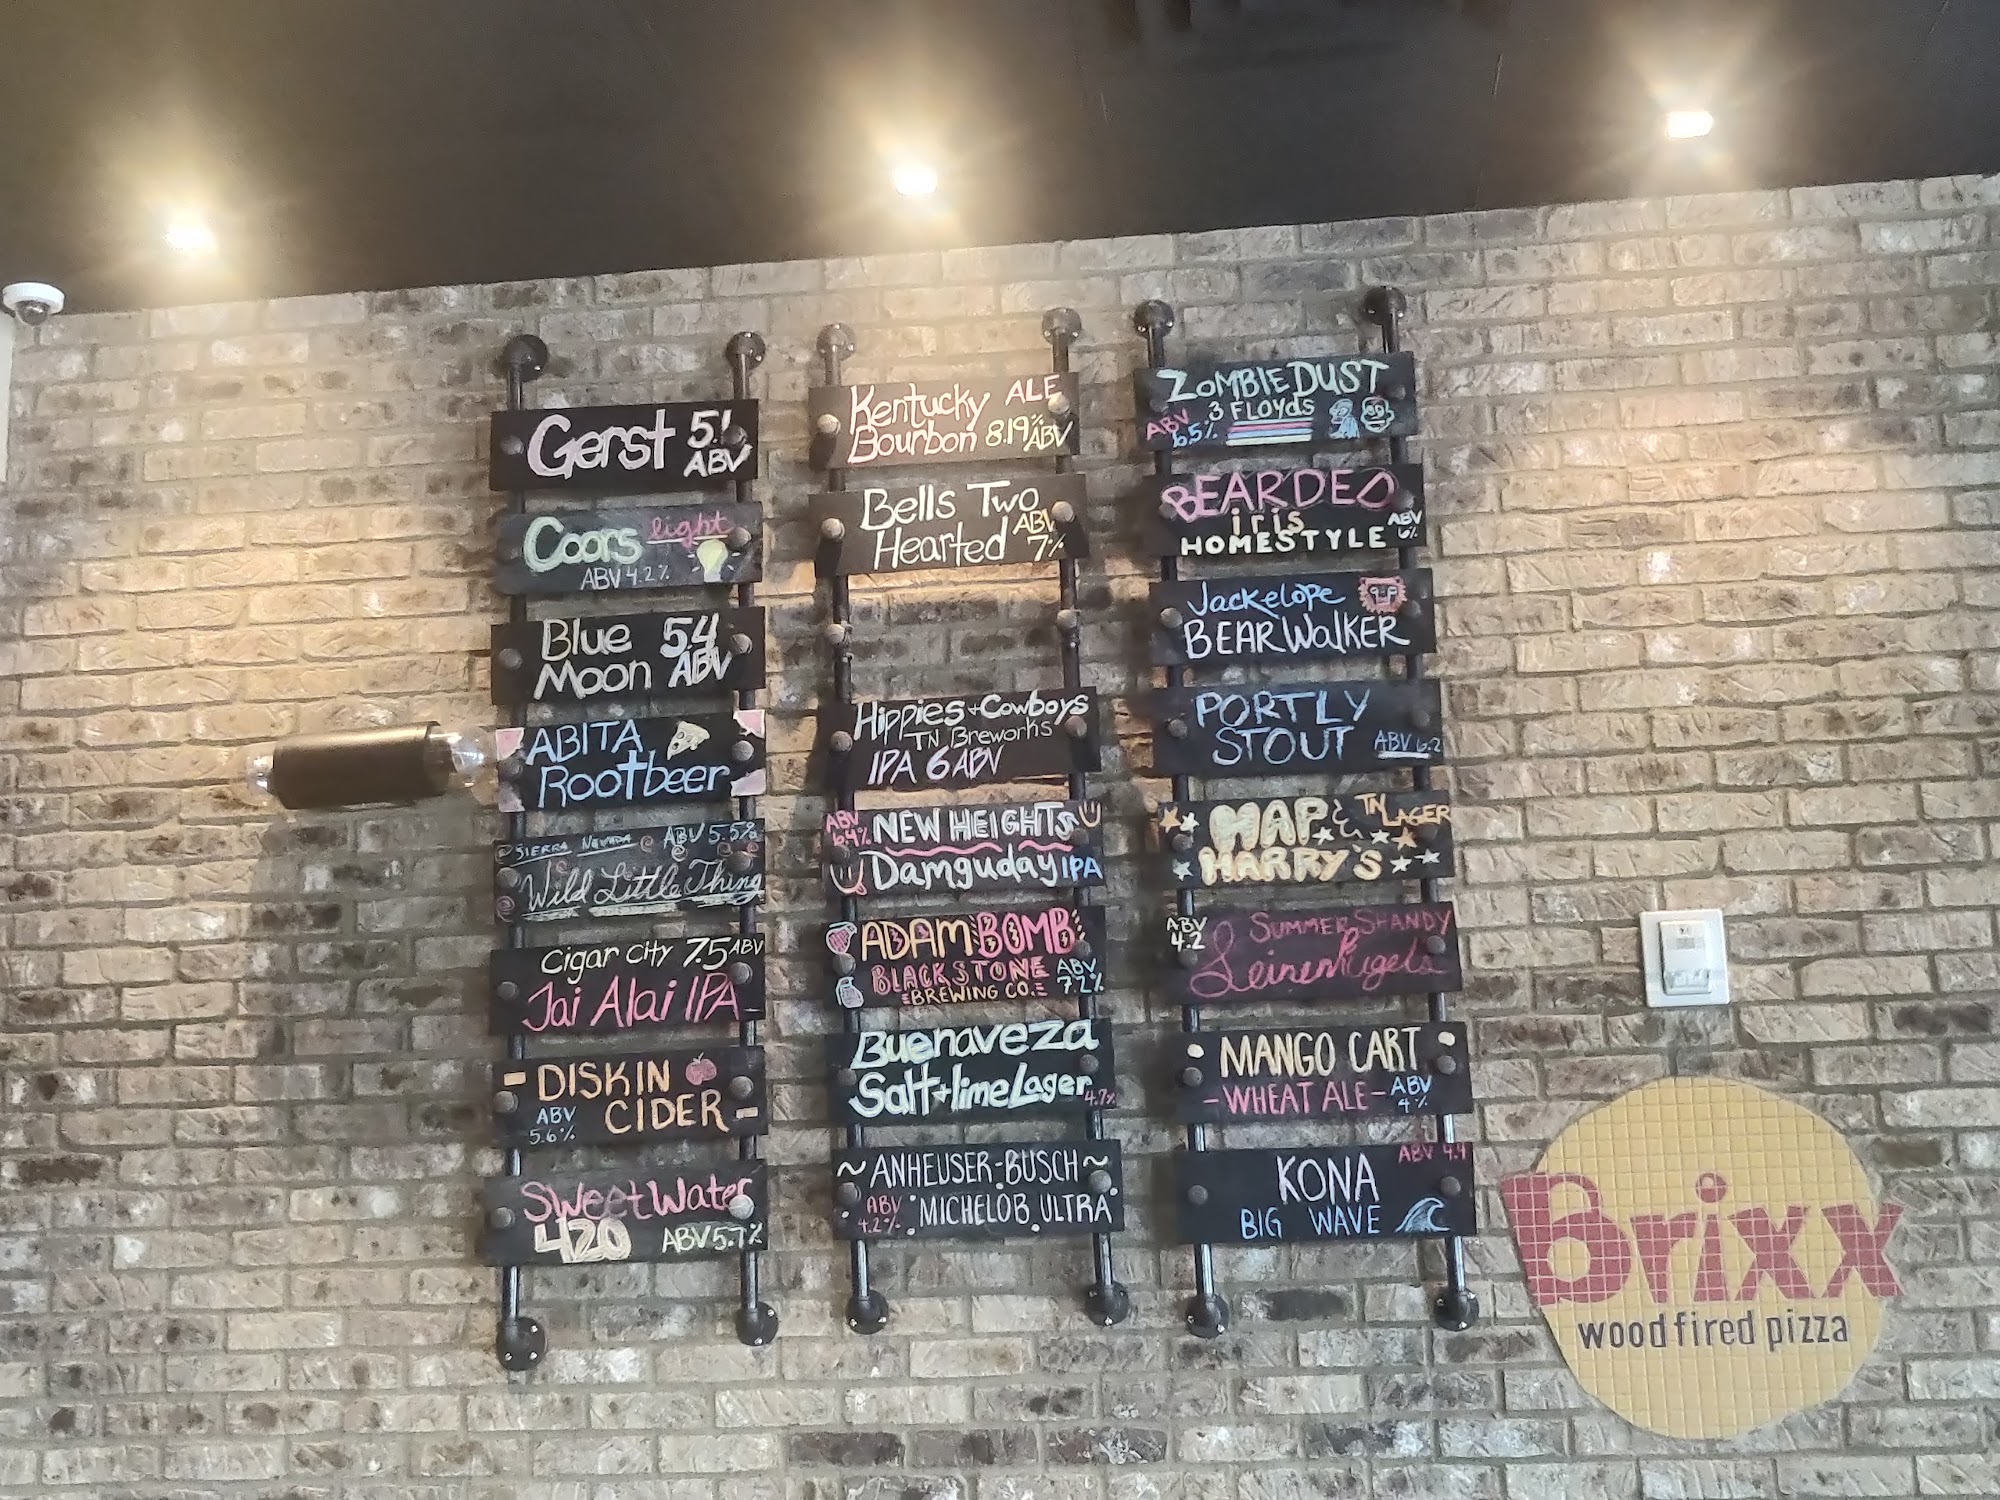 Gerst 5.1
ABV
Coors light
ABV 4.2%
Blue 5.4
Moon ABV
ABITA
Rootbeer
SIERRA NEVADA ABV 5.5%
Wild Little Thing
Cigar City 7.5 ABV
Jai Alai IPA
DISKIN
CIDER
ABV
5.6%
SweetWater
420 ABV 5.7%
Kentucky ALE
Bourbon 8.19% ABV
Bells Two
Hearted ABV
7%
Hippies + Cowboys
TN Breworks
IPA 6 ABV
ABV
6.4%
NEW HEIGHTS
Damguday IPA
ADAM BOMB
BLACKSTONE
BREWING CO.
ABV
7.2%
Buenaveza
Salt + lime Lager 4.7%
~ ANHEUSER-BUSCH ~
ABV
4.2%
MICHELOB ULTRA
ZOMBIE DUST
3 FLOYDS
ABV
6.5%
BEARDED
iris
HOMESTYLE
ABV
6%
Jackelope
BEARWalKER
PORTLY
STOUT ABV 6.2
MAP & TN LAGER
HARRY'S
ABV
4.2
SUMMER SHANDY
Leinenkugels
MANGO CART
- WHEAT ALE -
ABV
4%
ABV 4.4
KONA
BIG WAVE
Brixx
wood fired pizza